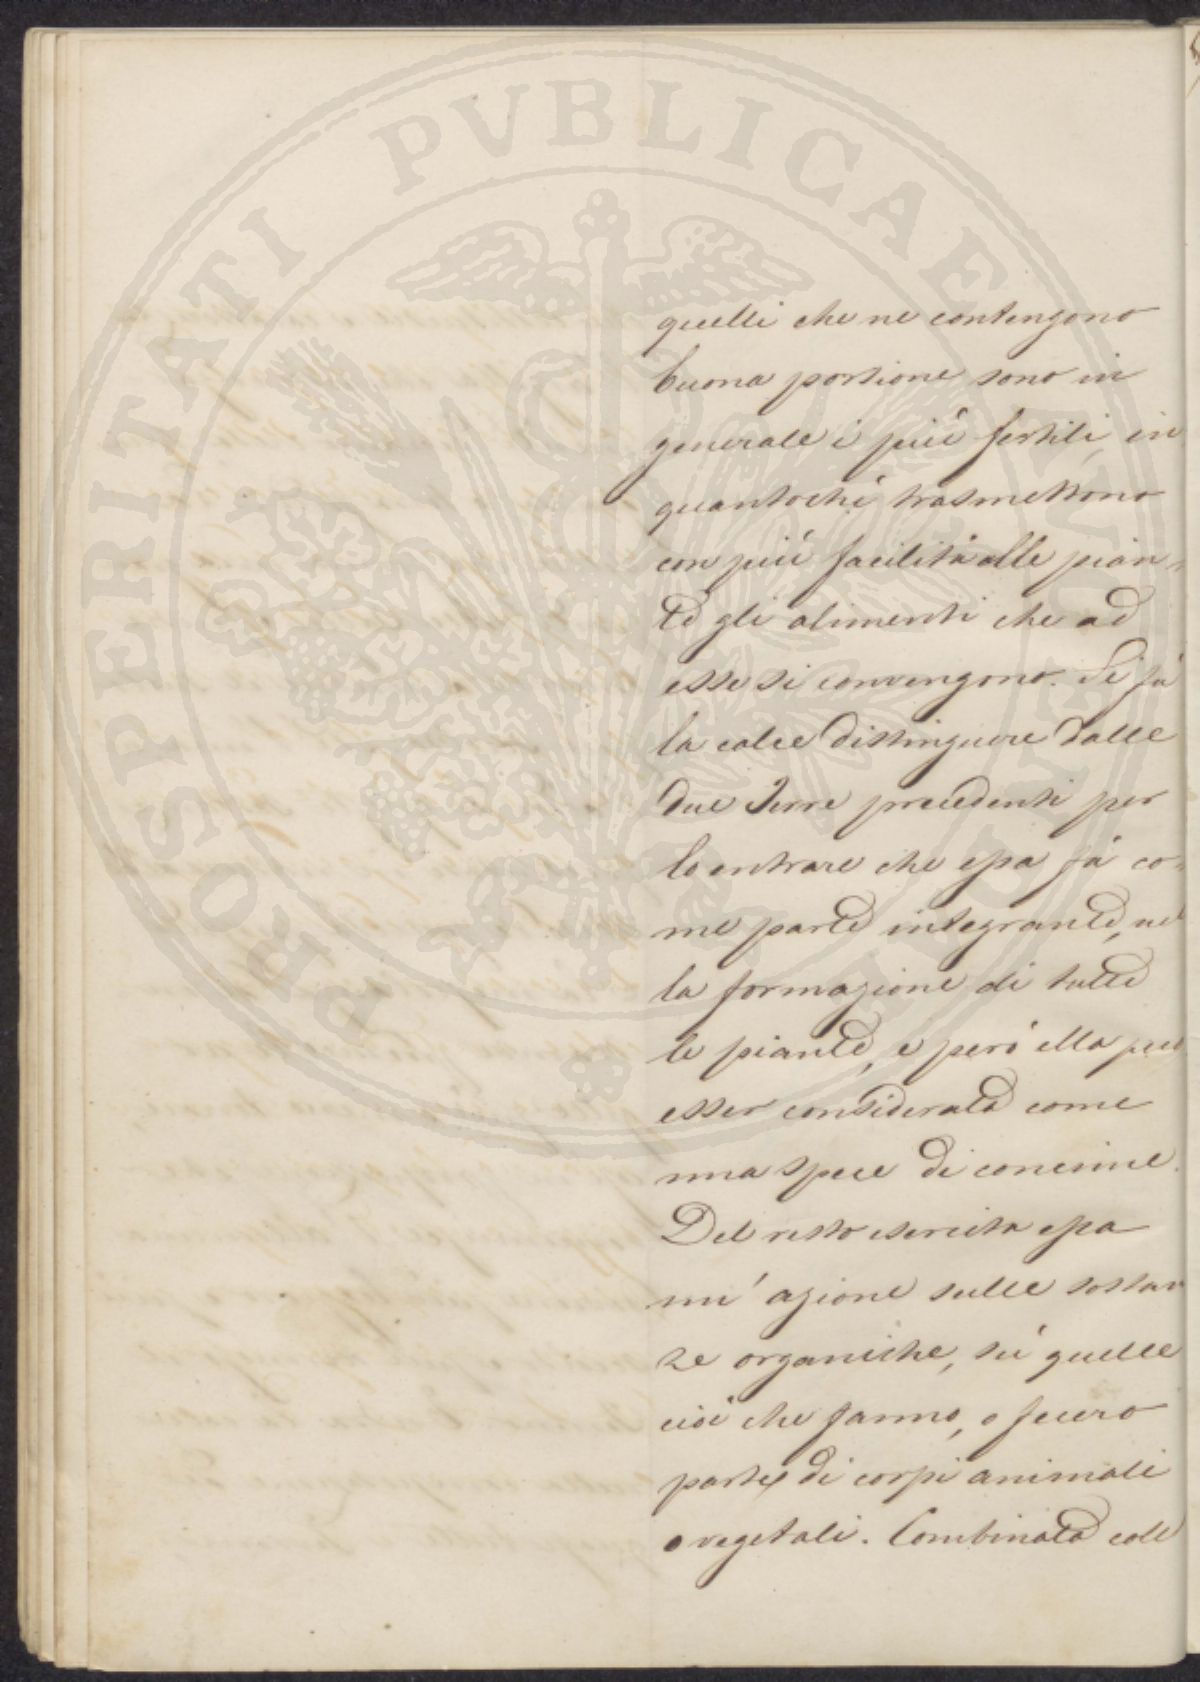 PROSPERITATI PVBLICAE
quelli che ne contengono
buona porzione sono in
generale i piú fertili, in
quantoché trasmettono
con piú facilità alle pian-
te gli alimenti che ad
esse si convengono. Si fà
la calce distinguere dalle
due Terre precedenti per
lo entrare che essa fà co-
me parte integrante, nel
la formazione di tutte
le piante, e però ella può
esser considerata come
una spece di concime.
Del resto esercita essa
un' azione sulle sostan
ze organiche, sù quelle
cioè che fanno, o fecero
parte di corpi animali
o vegetali. Combinata coll